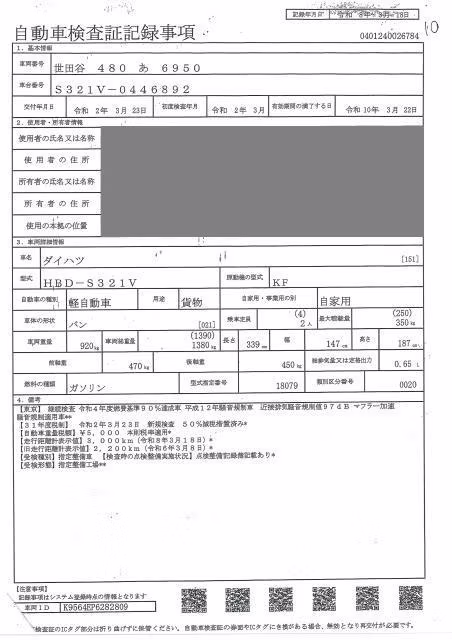 記録年月日 令和 8年 3月 18日
自動車検査証記録事項
0401240026784
10
1．基本情報
車両番号 世田谷 480 あ 6950
車台番号 S321V-0446892
交付年月日 令和 2年 3月 23日 初度検査年月 令和 2年 3月 有効期間の満了する日 令和 10年 3月 22日
2．使用者・所有者情報
使用者の氏名又は名称
使用者の住所
所有者の氏名又は名称
所有者の住所
使用の本拠の位置
3．車両詳細情報
車名 ダイハツ [151]
型式 HBD-S321V 原動機の型式 KF
自動車の種別 軽自動車 用途 貨物 自家用・事業用の別 自家用
車体の形状 バン [021] 乗車定員 (4) 2人 最大積載量 (250) 350kg
車両重量 920kg 車両総重量 (1390) 1380kg 長さ 339cm 幅 147cm 高さ 187cm
前軸重 470kg 後軸重 450kg 総排気量又は定格出力 0.65 L
燃料の種類 ガソリン 型式指定番号 18079 類別区分番号 0020
4．備考
【東京】 継続検査 令和4年度燃費基準90％達成車 平成12年騒音規制車 近接排気騒音規制値97dB マフラー加速
騒音規制適用車**
【31年度税制】 令和2年3月23日 新規検査 50％減税措置済み*
【自動車重量税額】¥5，000 本則税率適用*
【走行距離計表示値】3，000km（令和8年3月18日）*
【旧走行距離計表示値】2，200km（令和6年3月8日）*
【受検種別】指定整備車 【検査時の点検整備実施状況】点検整備記録簿記載あり*
【受検形態】指定整備工場**
【注意事項】
記録事項はシステム登録時点の情報となります
車両ID K9564EP6282809
*検査証のICタグ部分は折り曲げずに保管ください。自動車検査証の券面やICタグにき損がある場合、無効となり再交付が必要です。